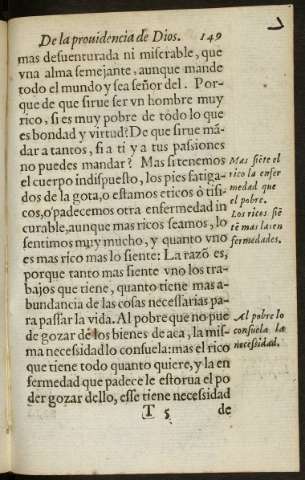 De la prouidencia de Dios. 149
mas desuenturada ni miserable, que
vna alma semejante, aunque mande
todo el mundo y sea señor del. Por-
que de que sirue ser vn hombre muy
rico, si es muy pobre de todo lo que
es bondad y virtud? De que sirue mã-
dar a tantos, si a ti y a tus passiones
no puedes mandar? Mas si tenemos
el cuerpo indispuesto, los pies fatiga-
dos de la gota, o estamos eticos ò tisi-
cos, o padecemos otra enfermedad in
curable, aunque mas ricos seamos, lo
sentimos muy mucho, y quanto vno
es mas rico mas lo siente: La razõ es,
porque tanto mas siente vno los tra-
bajos que tiene, quanto tiene mas a-
bundancia de las cosas necessarias pa-
ra passar la vida. Al pobre que no pue
de gozar de los bienes de aca, la mis-
ma necesidad lo consuela: mas el rico
que tiene todo quanto quiere, y la en
fermedad que padece le estorua el po
der gozar dello, esse tiene necessidad
T 5 de
Mas siẽte el
rico la enfer
medad que
el pobre.
Los ricos siẽ
tẽ mas las en
fermedades.
Al pobre lo
consuela la
necessidad.